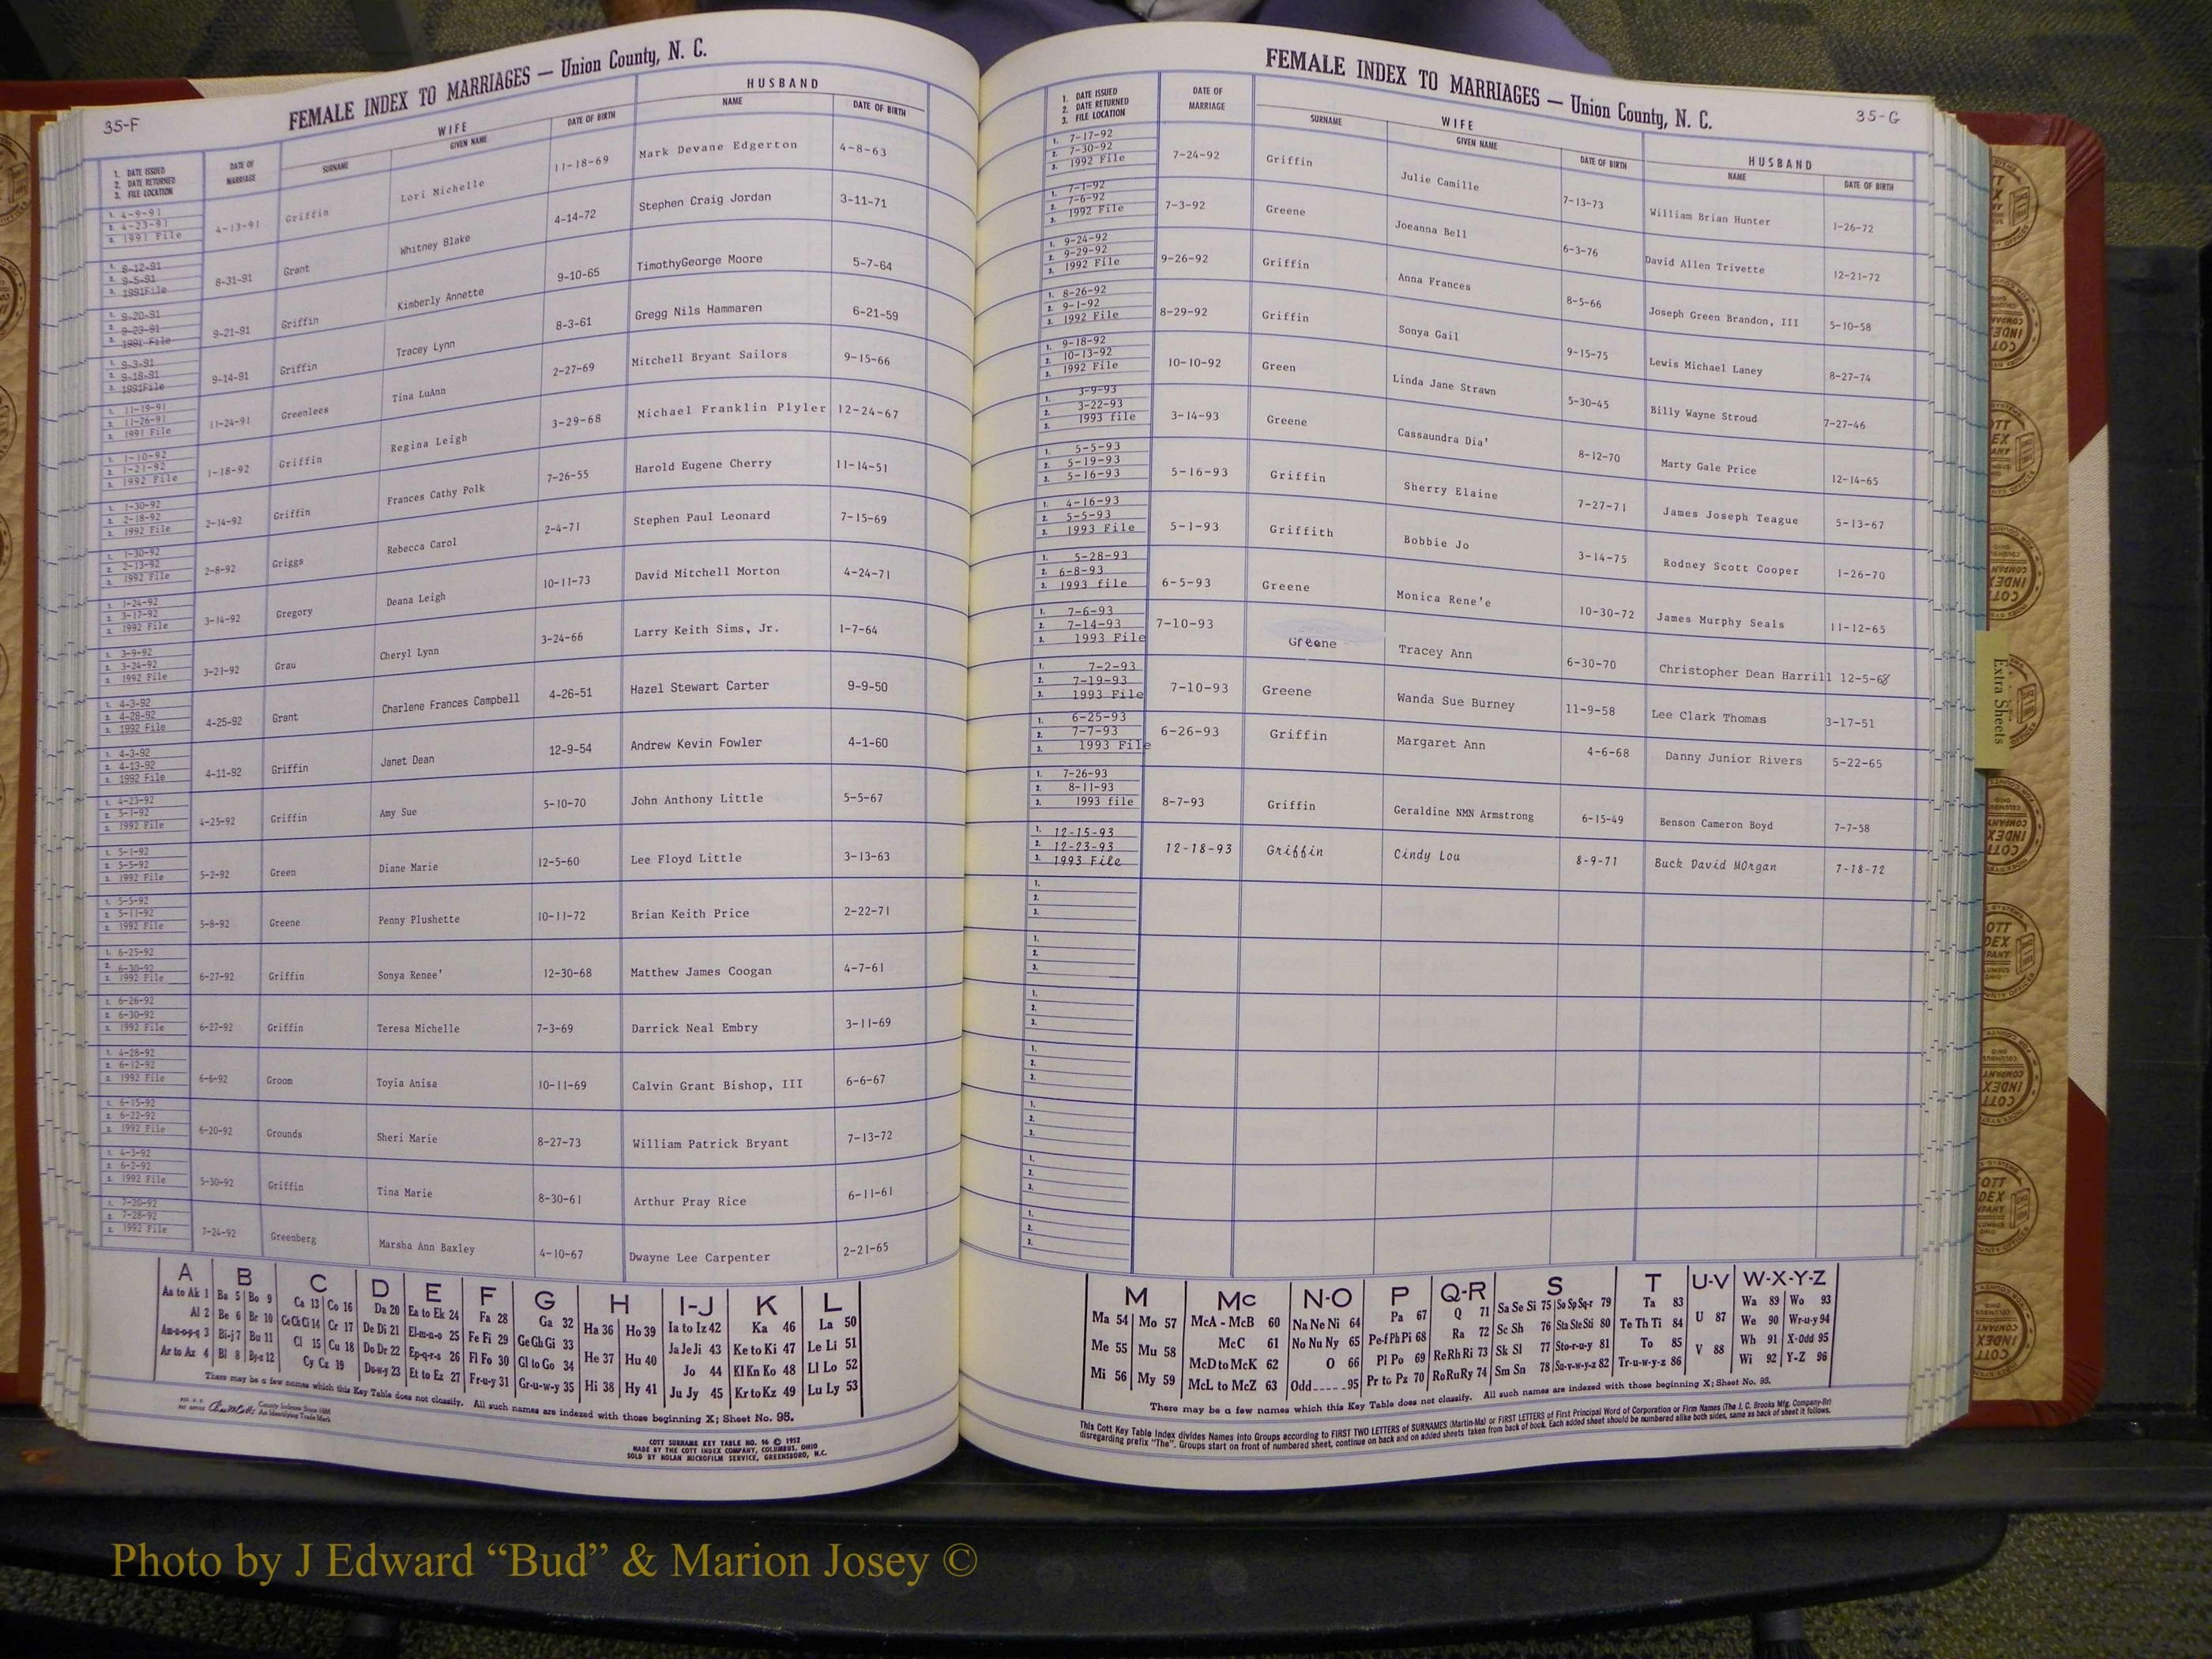 35-F
FEMALE INDEX TO MARRIAGES — Union County, N. C.
WIFE
HUSBAND
1. DATE ISSUED
2. DATE RETURNED
3. FILE LOCATION
DATE OF MARRIAGE
SURNAME
GIVEN NAME
DATE OF BIRTH
NAME
DATE OF BIRTH
1. 4-9-91 2. 4-23-91 3. 1991 File 4-13-91 Griffin Lori Michelle 11-18-69 Mark Devane Edgerton 4-8-63
1. 8-12-91 2. 9-5-91 3. 1991File 8-31-91 Grant Whitney Blake 4-14-72 Stephen Craig Jordan 3-11-71
1. 9-20-91 2. 9-23-91 3. 1991 File 9-21-91 Griffin Kimberly Annette 9-10-65 TimothyGeorge Moore 5-7-64
1. 9-3-91 2. 9-18-91 3. 1991File 9-14-91 Griffin Tracey Lynn 8-3-61 Gregg Nils Hammaren 6-21-59
1. 11-19-91 2. 11-26-91 3. 1991 File 11-24-91 Greenlees Tina LuAnn 2-27-69 Mitchell Bryant Sailors 9-15-66
1. 1-10-92 2. 1-21-92 3. 1992 File 1-18-92 Griffin Regina Leigh 3-29-68 Michael Franklin Plyler 12-24-67
1. 1-30-92 2. 2-18-92 3. 1992 File 2-14-92 Griffin Frances Cathy Polk 7-26-55 Harold Eugene Cherry 11-14-51
1. 1-30-92 2. 2-13-92 3. 1992 File 2-8-92 Griggs Rebecca Carol 2-4-71 Stephen Paul Leonard 7-15-69
1. 1-24-92 2. 3-17-92 3. 1992 File 3-14-92 Gregory Deana Leigh 10-11-73 David Mitchell Morton 4-24-71
1. 3-9-92 2. 3-24-92 3. 1992 File 3-21-92 Grau Cheryl Lynn 3-24-66 Larry Keith Sims, Jr. 1-7-64
1. 4-3-92 2. 4-28-92 3. 1992 File 4-25-92 Grant Charlene Frances Campbell 4-26-51 Hazel Stewart Carter 9-9-50
1. 4-3-92 2. 4-13-92 3. 1992 File 4-11-92 Griffin Janet Dean 12-9-54 Andrew Kevin Fowler 4-1-60
1. 4-23-92 2. 5-1-92 3. 1992 File 4-25-92 Griffin Amy Sue 5-10-70 John Anthony Little 5-5-67
1. 5-1-92 2. 5-5-92 3. 1992 File 5-2-92 Green Diane Marie 12-5-60 Lee Floyd Little 3-13-63
1. 5-5-92 2. 5-11-92 3. 1992 File 5-8-92 Greene Penny Plushette 10-11-72 Brian Keith Price 2-22-71
1. 6-25-92 2. 6-30-92 3. 1992 File 6-27-92 Griffin Sonya Renee' 12-30-68 Matthew James Coogan 4-7-61
1. 6-26-92 2. 6-30-92 3. 1992 File 6-27-92 Griffin Teresa Michelle 7-3-69 Darrick Neal Embry 3-11-69
1. 4-28-92 2. 6-12-92 3. 1992 File 6-6-92 Groom Toyia Anisa 10-11-69 Calvin Grant Bishop, III 6-6-67
1. 6-15-92 2. 6-22-92 3. 1992 File 6-20-92 Grounds Sheri Marie 8-27-73 William Patrick Bryant 7-13-72
1. 4-3-92 2. 6-2-92 3. 1992 File 5-30-92 Griffin Tina Marie 8-30-61 Arthur Pray Rice 6-11-61
1. 7-20-92 2. 7-28-92 3. 1992 File 7-24-92 Greenberg Marsha Ann Baxley 4-10-67 Dwayne Lee Carpenter 2-21-65
A B C D E F G H I-J K L
Aa to Ak 1 Ba 5 Bo 9 Ca 13 Co 16 Da 20 Ea to Ek 24 Fa 28 Ga 32 Ha 36 Ho 39 Ia to Iz 42 Ka 46 La 50
Al 2 Be 6 Br 10 Ce Ch Ci 14 Cr 17 De Di 21 El-m-n-o 25 Fe Fi 29 Ge Gh Gi 33 He 37 Hu 40 Ja Je Ji 43 Ke to Ki 47 Le Li 51
Am-n-o-p-q 3 Bi-j 7 Bu 11 Cl 15 Cu 18 Do Dr 22 Ep-q-r-s 26 Fl Fo 30 Gl to Go 34 Hi 38 Hy 41 Jo 44 Kl Kn Ko 48 Ll Lo 52
Ar to Az 4 Bl 8 By-z 12 Cy Cz 19 Du-w-y 23 Et to Ez 27 Fr-u-y 31 Gr-u-w-y 35 Ju Jy 45 Kr to Kz 49 Lu Ly 53
There may be a few names which this Key Table does not classify. All such names are indexed with those beginning X; Sheet No. 95.
County Indexes Since 1888
An Identifying Trade Mark
COTT SURNAME KEY TABLE NO. 96 © 1952
MADE BY THE COTT INDEX COMPANY, COLUMBUS, OHIO
SOLD BY NOLAN MICROFILM SERVICE, GREENSBORO, N.C.
FEMALE INDEX TO MARRIAGES — Union County, N. C.
35-G
1. DATE ISSUED
2. DATE RETURNED
3. FILE LOCATION
DATE OF MARRIAGE
WIFE
SURNAME
GIVEN NAME
DATE OF BIRTH
HUSBAND
NAME
DATE OF BIRTH
1. 7-17-92 2. 7-30-92 3. 1992 File 7-24-92 Griffin Julie Camille 7-13-73 William Brian Hunter 1-26-72
1. 7-1-92 2. 7-6-92 3. 1992 File 7-3-92 Greene Joeanna Bell 6-3-76 David Allen Trivette 12-21-72
1. 9-24-92 2. 9-29-92 3. 1992 File 9-26-92 Griffin Anna Frances 8-5-66 Joseph Green Brandon, III 5-10-58
1. 8-26-92 2. 9-1-92 3. 1992 File 8-29-92 Griffin Sonya Gail 9-15-75 Lewis Michael Laney 8-27-74
1. 9-18-92 2. 10-13-92 3. 1992 File 10-10-92 Green Linda Jane Strawn 5-30-45 Billy Wayne Stroud 7-27-46
1. 3-9-93 2. 3-22-93 3. 1993 file 3-14-93 Greene Cassaundra Dia' 8-12-70 Marty Gale Price 12-14-65
1. 5-5-93 2. 5-19-93 3. 5-16-93 5-16-93 Griffin Sherry Elaine 7-27-71 James Joseph Teague 5-13-67
1. 4-16-93 2. 5-5-93 3. 1993 File 5-1-93 Griffith Bobbie Jo 3-14-75 Rodney Scott Cooper 1-26-70
1. 5-28-93 2. 6-8-93 3. 1993 file 6-5-93 Greene Monica Rene'e 10-30-72 James Murphy Seals 11-12-65
1. 7-6-93 2. 7-14-93 3. 1993 File 7-10-93 Greene Tracey Ann 6-30-70 Christopher Dean Harrill 12-5-68
1. 7-2-93 2. 7-19-93 3. 1993 File 7-10-93 Greene Wanda Sue Burney 11-9-58 Lee Clark Thomas 3-17-51
1. 6-25-93 2. 7-7-93 3. 1993 File 6-26-93 Griffin Margaret Ann 4-6-68 Danny Junior Rivers 5-22-65
1. 7-26-93 2. 8-11-93 3. 1993 file 8-7-93 Griffin Geraldine NMN Armstrong 6-15-49 Benson Cameron Boyd 7-7-58
1. 12-15-93 2. 12-23-93 3. 1993 File 12-18-93 Griffin Cindy Lou 8-9-71 Buck David MOrgan 7-18-72
1. 2. 3.
1. 2. 3.
1. 2. 3.
1. 2. 3.
1. 2. 3.
1. 2. 3.
1. 2. 3.
M Mc N-O P Q-R S T U-V W-X-Y-Z
Ma 54 Mo 57 McA - McB 60 Na Ne Ni 64 Pa 67 Q 71 Sa Se Si 75 So Sp Sq-r 79 Ta 83 U 87 Wa 89 Wo 93
Me 55 Mu 58 McC 61 No Nu Ny 65 Pe-f Ph Pi 68 Ra 72 Sc Sh 76 Sta Ste Sti 80 Te Th Ti 84 V 88 We 90 Wr-u-y 94
Mi 56 My 59 McD to McK 62 O 66 Pl Po 69 Re Rh Ri 73 Sk Sl 77 Sto-r-u-y 81 To 85 Wh 91 X-Odd 95
McL to McZ 63 Odd 95 Pr to Pz 70 Ro Ru Ry 74 Sm Sn 78 Su-v-w-y-z 82 Tr-u-w-y-z 86 Wi 92 Y-Z 96
There may be a few names which this Key Table does not classify. All such names are indexed with those beginning X; Sheet No. 95.
This Cott Key Table Index divides Names into Groups according to FIRST TWO LETTERS of SURNAMES (Martin-Ma) or FIRST LETTERS of First Principal Word of Corporation or Firm Names (The J. C. Brooks Mfg. Company-Br)
disregarding prefix "The". Groups start on front of numbered sheet, continue on back and on added sheets taken from back of book. Each added sheet should be numbered alike both sides, same as back of sheet it follows.
Extra Sheets
Photo by J Edward “Bud” & Marion Josey ©